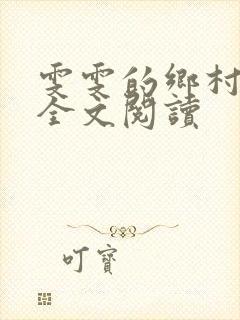 雯雯的鄉村
全文閱讀
叮寶